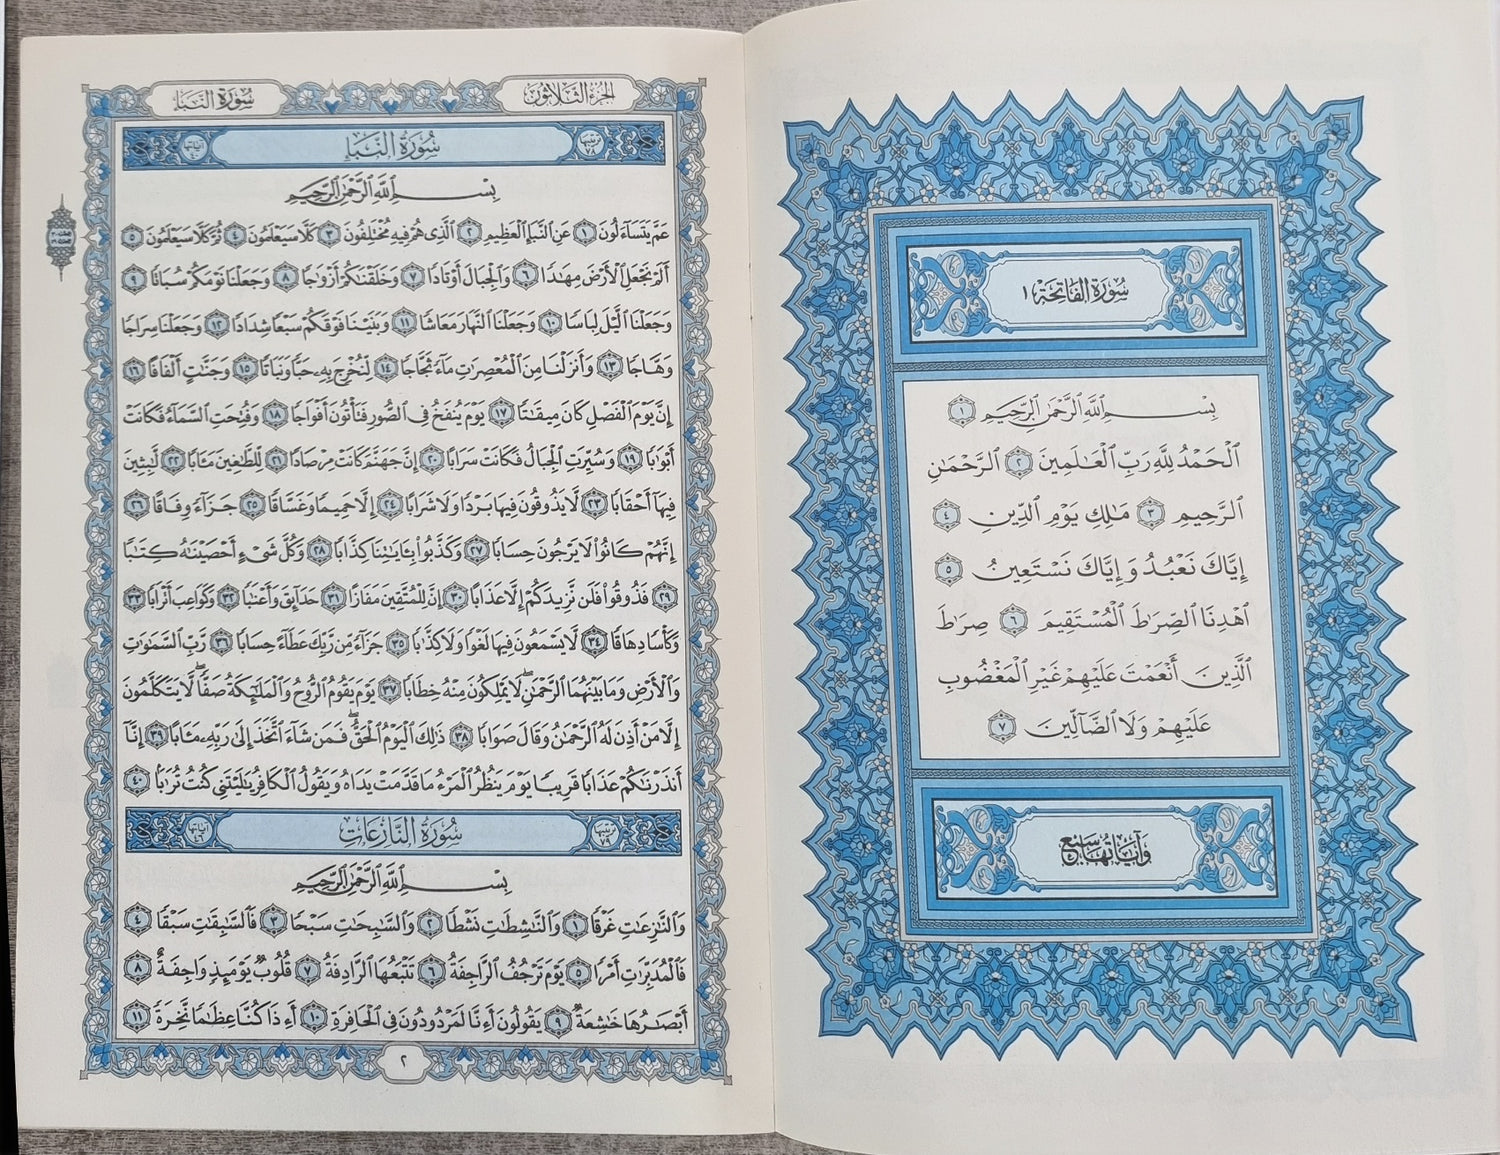 سُورَةُ الفَاتِحَةِ ١
بِسْمِ ٱللَّهِ ٱلرَّحْمَٰنِ ٱلرَّحِيمِ ١
ٱلْحَمْدُ لِلَّهِ رَبِّ ٱلْعَٰلَمِينَ ٢ ٱلرَّحْمَٰنِ
ٱلرَّحِيمِ ٣ مَٰلِكِ يَوْمِ ٱلدِّينِ ٤
إِيَّاكَ نَعْبُدُ وَإِيَّاكَ نَسْتَعِينُ ٥
ٱهْدِنَا ٱلصِّرَٰطَ ٱلْمُسْتَقِيمَ ٦ صِرَٰطَ
ٱلَّذِينَ أَنْعَمْتَ عَلَيْهِمْ غَيْرِ ٱلْمَغْضُوبِ
عَلَيْهِمْ وَلَا ٱلضَّآلِّينَ ٧
وَآيَاتُهَا سَبْعٌ
الجُزْءُ الثَّلَاثُونَ
سُورَةُ النَّبَإِ
تَرْتِيبُهَا ٧٨
سُورَةُ النَّبَإِ
آيَاتُهَا ٤٠
بِسْمِ ٱللَّهِ ٱلرَّحْمَٰنِ ٱلرَّحِيمِ
عَمَّ يَتَسَآءَلُونَ ١ عَنِ ٱلنَّبَإِ ٱلْعَظِيمِ ٢ ٱلَّذِى هُمْ فِيهِ مُخْتَلِفُونَ ٣ كَلَّا سَيَعْلَمُونَ ٤ ثُمَّ كَلَّا سَيَعْلَمُونَ ٥
أَلَمْ نَجْعَلِ ٱلْأَرْضَ مِهَٰدًا ٦ وَٱلْجِبَالَ أَوْتَادًا ٧ وَخَلَقْنَٰكُمْ أَزْوَٰجًا ٨ وَجَعَلْنَا نَوْمَكُمْ سُبَاتًا ٩
وَجَعَلْنَا ٱلَّيْلَ لِبَاسًا ١٠ وَجَعَلْنَا ٱلنَّهَارَ مَعَاشًا ١١ وَبَنَيْنَا فَوْقَكُمْ سَبْعًا شِدَادًا ١٢ وَجَعَلْنَا سِرَاجًا
وَهَّاجًا ١٣ وَأَنزَلْنَا مِنَ ٱلْمُعْصِرَٰتِ مَآءً ثَجَّاجًا ١٤ لِّنُخْرِجَ بِهِۦ حَبًّا وَنَبَاتًا ١٥ وَجَنَّٰتٍ أَلْفَافًا ١٦
إِنَّ يَوْمَ ٱلْفَصْلِ كَانَ مِيقَٰتًا ١٧ يَوْمَ يُنفَخُ فِى ٱلصُّورِ فَتَأْتُونَ أَفْوَاجًا ١٨ وَفُتِحَتِ ٱلسَّمَآءُ فَكَانَتْ
أَبْوَٰبًا ١٩ وَسُيِّرَتِ ٱلْجِبَالُ فَكَانَتْ سَرَابًا ٢٠ إِنَّ جَهَنَّمَ كَانَتْ مِرْصَادًا ٢١ لِّلطَّٰغِينَ مَـَٔابًا ٢٢ لَّٰبِثِينَ
فِيهَآ أَحْقَابًا ٢٣ لَّا يَذُوقُونَ فِيهَا بَرْدًا وَلَا شَرَابًا ٢٤ إِلَّا حَمِيمًا وَغَسَّاقًا ٢٥ جَزَآءً وِفَاقًا ٢٦
إِنَّهُمْ كَانُوا۟ لَا يَرْجُونَ حِسَابًا ٢٧ وَكَذَّبُوا۟ بِـَٔايَٰتِنَا كِذَّابًا ٢٨ وَكُلَّ شَىْءٍ أَحْصَيْنَٰهُ كِتَٰبًا
٢٩ فَذُوقُوا۟ فَلَن نَّزِيدَكُمْ إِلَّا عَذَابًا ٣٠ إِنَّ لِلْمُتَّقِينَ مَفَازًا ٣١ حَدَآئِقَ وَأَعْنَٰبًا ٣٢ وَكَوَاعِبَ أَتْرَابًا ٣٣
وَكَأْسًا دِهَاقًا ٣٤ لَّا يَسْمَعُونَ فِيهَا لَغْوًا وَلَا كِذَّٰبًا ٣٥ جَزَآءً مِّن رَّبِّكَ عَطَآءً حِسَابًا ٣٦ رَّبِّ ٱلسَّمَٰوَٰتِ
وَٱلْأَرْضِ وَمَا بَيْنَهُمَا ٱلرَّحْمَٰنِ ۖ لَا يَمْلِكُونَ مِنْهُ خِطَابًا ٣٧ يَوْمَ يَقُومُ ٱلرُّوحُ وَٱلْمَلَٰٓئِكَةُ صَفًّا ۖ لَّا يَتَكَلَّمُونَ
إِلَّا مَنْ أَذِنَ لَهُ ٱلرَّحْمَٰنُ وَقَالَ صَوَابًا ٣٨ ذَٰلِكَ ٱلْيَوْمُ ٱلْحَقُّ ۖ فَمَن شَآءَ ٱتَّخَذَ إِلَىٰ رَبِّهِۦ مَـَٔابًا ٣٩ إِنَّآ
أَنذَرْنَٰكُمْ عَذَابًا قَرِيبًا يَوْمَ يَنظُرُ ٱلْمَرْءُ مَا قَدَّمَتْ يَدَاهُ وَيَقُولُ ٱلْكَافِرُ يَٰلَيْتَنِى كُنتُ تُرَٰبًۢا ٤٠
تَرْتِيبُهَا ٧٩
سُورَةُ النَّازِعَاتِ
آيَاتُهَا ٤٦
بِسْمِ ٱللَّهِ ٱلرَّحْمَٰنِ ٱلرَّحِيمِ
وَٱلنَّٰزِعَٰتِ غَرْقًا ١ وَٱلنَّٰشِطَٰتِ نَشْطًا ٢ وَٱلسَّٰبِحَٰتِ سَبْحًا ٣ فَٱلسَّٰبِقَٰتِ سَبْقًا ٤
فَٱلْمُدَبِّرَٰتِ أَمْرًا ٥ يَوْمَ تَرْجُفُ ٱلرَّاجِفَةُ ٦ تَتْبَعُهَا ٱلرَّادِفَةُ ٧ قُلُوبٌ يَوْمَئِذٍ وَاجِفَةٌ ٨
أَبْصَٰرُهَا خَٰشِعَةٌ ٩ يَقُولُونَ أَءِنَّا لَمَرْدُودُونَ فِى ٱلْحَافِرَةِ ١٠ أَءِذَا كُنَّا عِظَٰمًا نَّخِرَةً ١١
٢